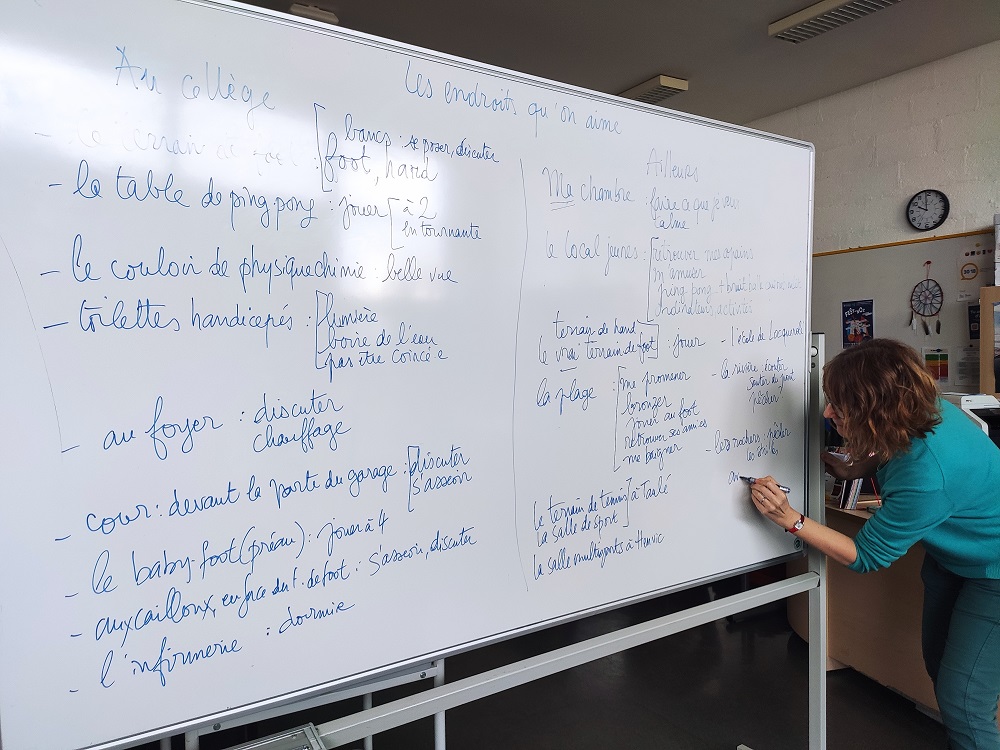 Les endroits qu'on aime
Au collège
bancs : se poser, discuter
foot, hand
- la table de ping pong : jouer à 2
en tournante
- le couloir de physique chimie : belle vue
- toilettes handicapés : lumière
boire de l'eau
pas être coincé e
- au foyer : discuter
chauffage
- cour : devant la porte du garage : discuter
s'asseoir
- le baby-foot (préau) : jouer à 4
- aux cailloux, en face du t. de foot : s'asseoir, discuter
- l'infirmerie : dormir
Ailleurs
Ma chambre : faire ce que je veux
calme
le local jeunes : retrouver mes copains
m'amuser
ping pong
terrain de hand
le vrai terrain de foot : jouer
la plage : me promener
bronzer
jouer au foot
retrouver ses ami es
me baigner
le terrain de tennis à Taulé
la salle de sport
la salle multisports à Henvic
- l'école de Locquénolé
- la rivière écouter
sauter du pont
pêcher
- les rochers : pêcher